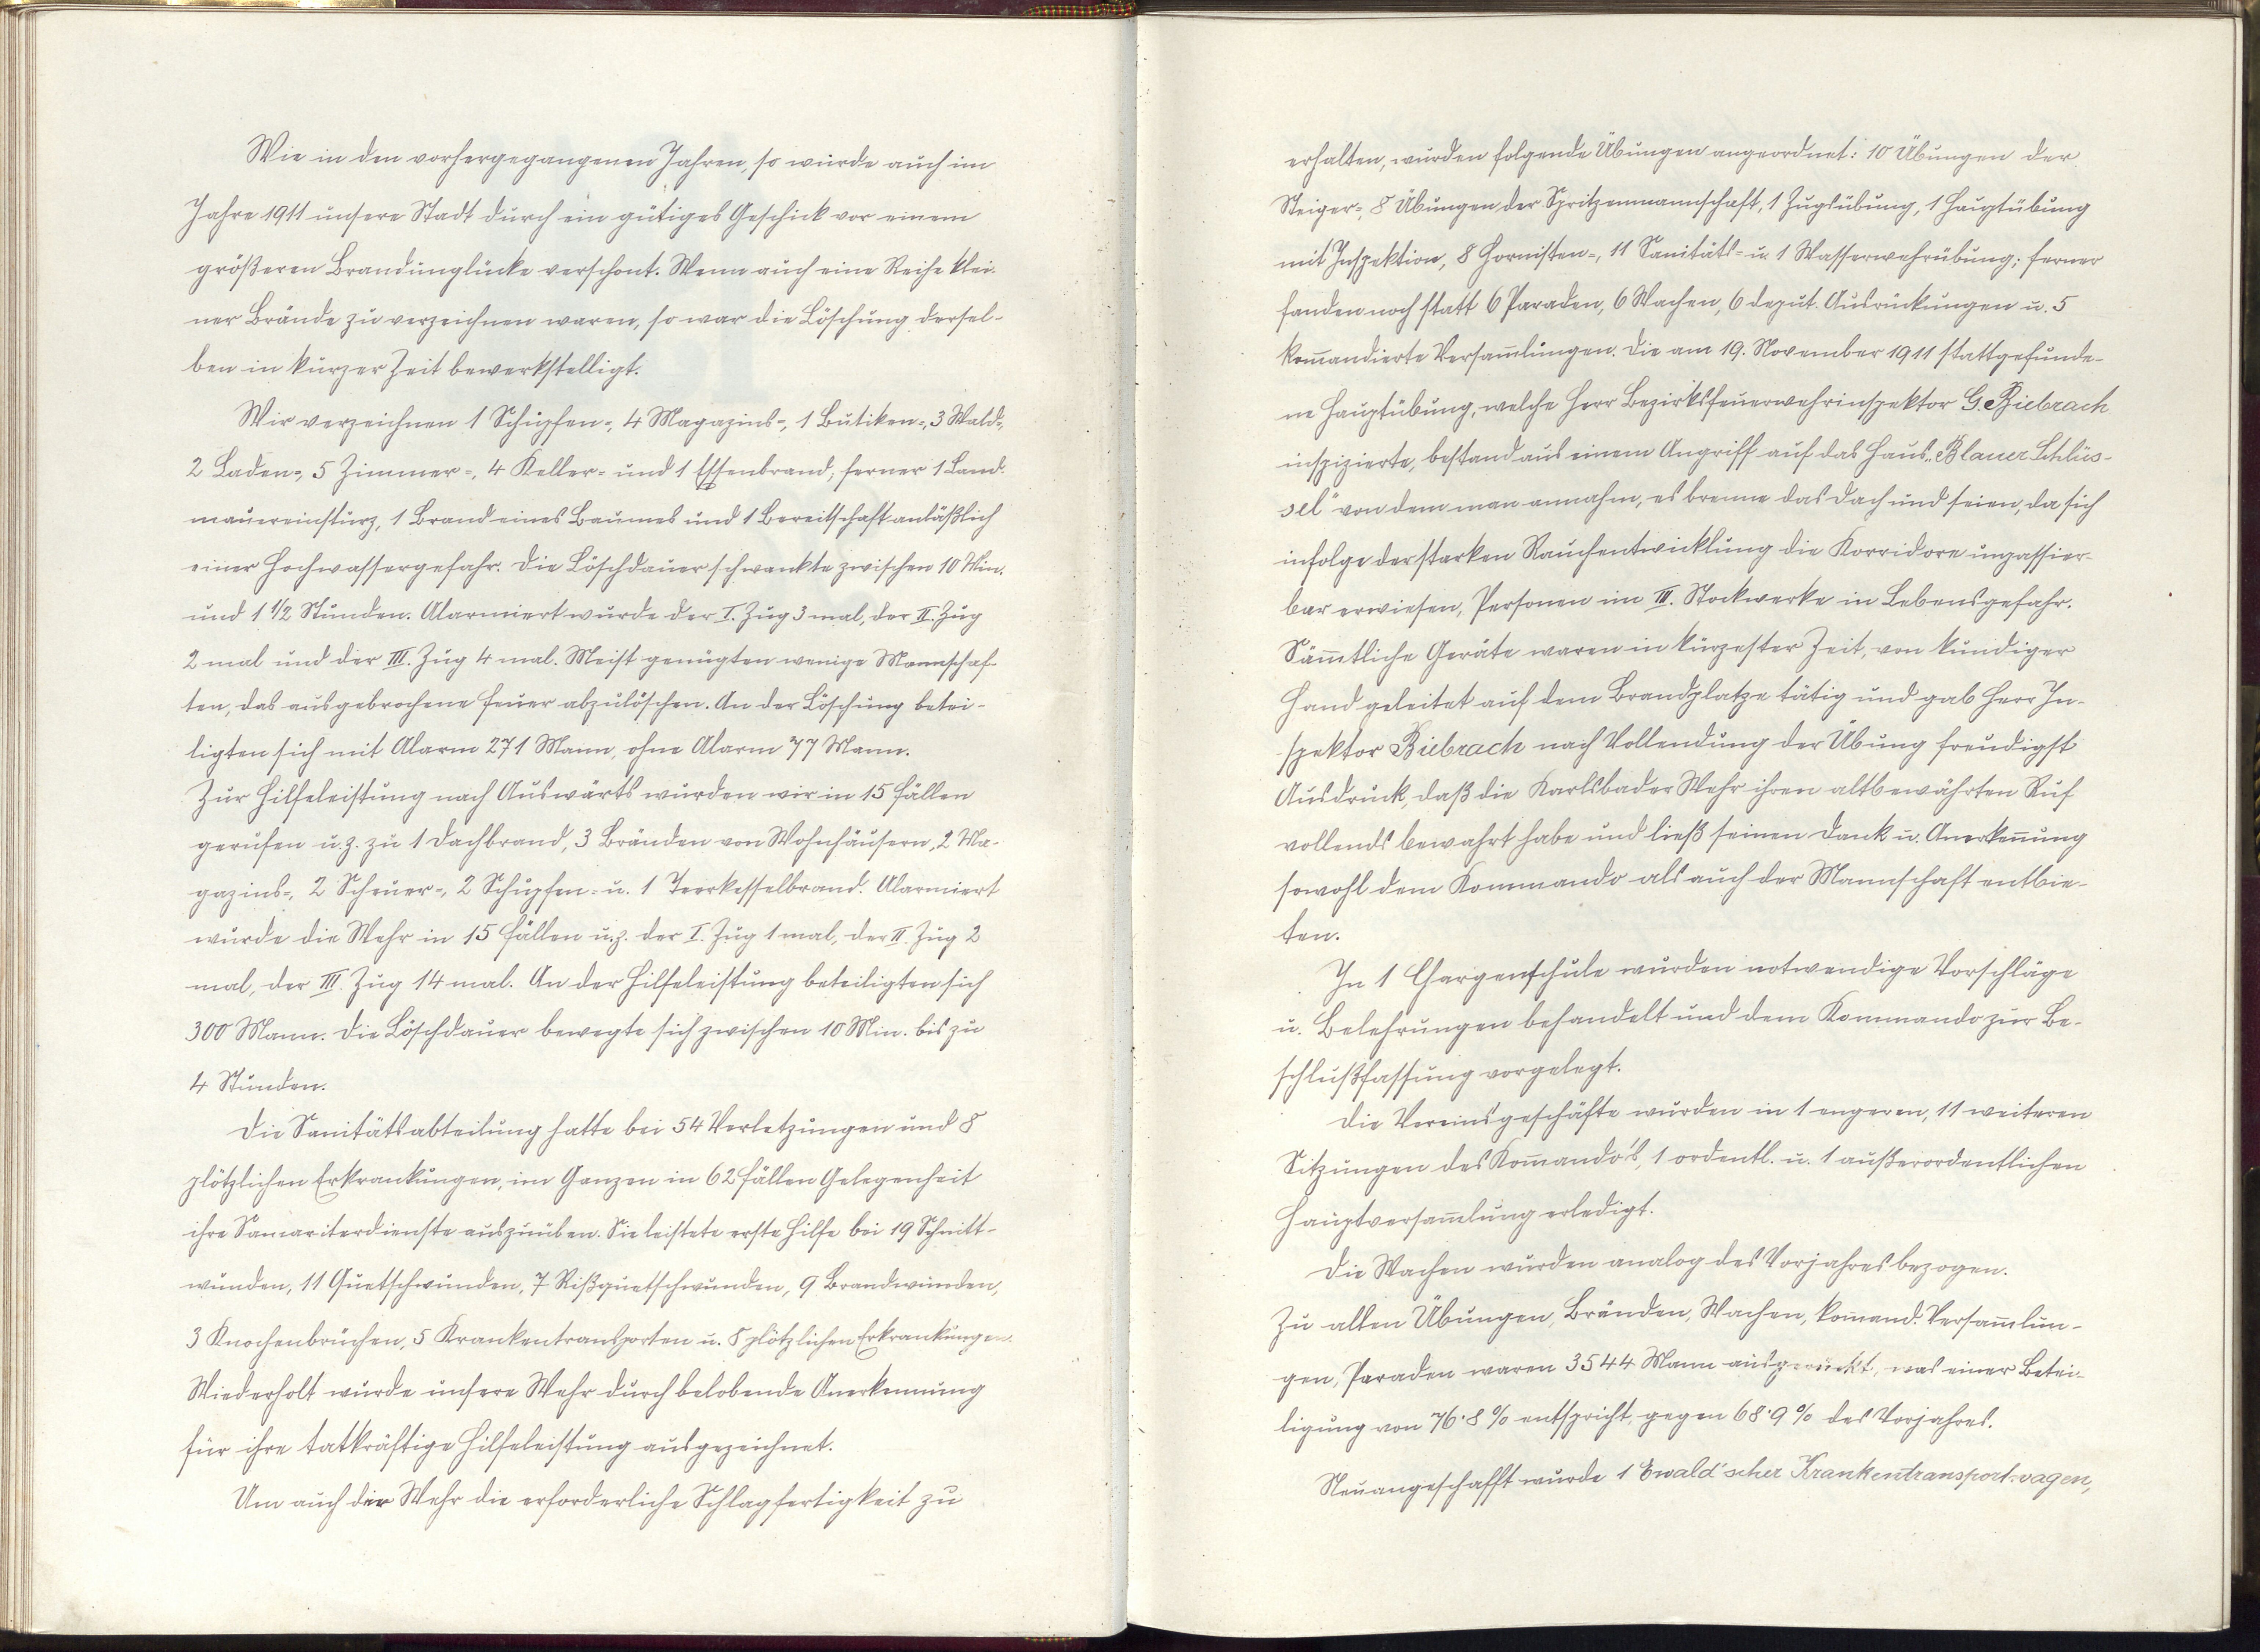 Wie in den vorhergegangenen Jahren, so wurde auch im
Jahre 1911 unsere Stadt durch ein gütiges Geschick vor einem
größeren Brandunglücke verschont. Wenn auch eine Reihe klei-
ner Brände zu verzeichnen waren, so war die Löschung dersel-
ben in kurzer Zeit bewerkstelligt.
Wir verzeichnen 1 Schupfen-, 4 Magazins-, 1 Butiken-, 3 Wald-,
2 Laden-, 5 Zimmer-, 4 Keller- und 1 Essenbrand, ferner 1 Land-
mauereinsturz, 1 Brand eines Baumes und 1 Bereitschaft anläßlich
einer Hochwassergefahr. Die Löschdauer schwankte zwischen 10 Min.
und 1 1/2 Stunden. Alarmiert wurde der I. Zug 3 mal, der II. Zug
2 mal und der III. Zug 4 mal. Meist genügten wenige Mannschaf-
ten, das ausgebrochene Feuer abzulöschen. An der Löschung betei-
ligten sich mit Alarm 271 Mann, ohne Alarm 77 Mann.
Zur Hilfeleistung nach Auswärts wurden wir in 15 Fällen
gerufen u. z. zu 1 Dachbrand, 3 Bränden von Wohnhäusern, 2 Ma-
gazins-, 2 Scheuer-, 2 Schupfen- u. 1 Teerkesselbrand. Alarmiert
wurde die Wehr in 15 Fällen u. z. der I. Zug 1 mal, der II. Zug 2
mal, der III. Zug 14 mal. An der Hilfeleistung beteiligten sich
300 Mann. Die Löschdauer bewegte sich zwischen 10 Min. bis zu
4 Stunden.
Die Sanitätsabteilung hatte bei 54 Verletzungen und 8
plötzlichen Erkrankungen, im Ganzen in 62 Fällen Gelegenheit
ihre Samariterdienste auszuüben. Sie leistete erste Hilfe bei 19 Schnitt-
wunden, 11 Quetschwunden, 7 Rißquetschwunden, 9 Brandwunden,
3 Knochenbrüchen, 5 Krankentransporten u. 8 plötzlichen Erkrankungen.
Wiederholt wurde unsere Wehr durch belobende Anerkennung
für ihre tatkräftige Hilfeleistung ausgezeichnet.
Um auch der Wehr die erforderliche Schlagfertigkeit zu
erhalten, wurden folgende Übungen angeordnet: 10 Übungen der
Steiger-, 8 Übungen der Spritzenmannschaft, 1 Zugsübung, 1 Hauptübung
mit Inspektion, 8 Hornisten-, 11 Sanitäts- u. 1 Wasserwehrübung; ferner
fanden noch statt 6 Paraden, 6 Wachen, 6 deput. Ausrückungen u. 5
kom̄andierte Versam̄lungen. Die am 19. November 1911 stattgefunde-
ne Hauptübung, welche Herr Bezirksfeuerwehrinspektor G. Biebrach
inspizierte, bestand aus einem Angriff auf das Haus „Blauer Schlüs-
sel" von dem man annahm, es brenne das Dach und seien, da sich
infolge der starken Rauchentwicklung die Korridore unpassier-
bar erwiesen, Personen im III. Stockwerke in Lebensgefahr.
Säm̄tliche Geräte waren in kürzester Zeit, von kundiger
Hand geleitet auf dem Brandplatze tätig und gab Herr In-
spektor Biebrach nach Vollendung der Übung freudigst
Ausdruck, daß die Karlsbader Wehr ihren altbewährten Ruf
vollends bewahrt habe und ließ seinen Dank u. Anerken̄ung
sowohl dem Kommando als auch der Mannschaft entbie-
ten.
In 1 Chargenschule wurden notwendige Vorschläge
u. Belehrungen behandelt und dem Kommando zur Be-
schlußfassung vorgelegt.
Die Vereinsgeschäfte wurden in 1 engeren, 11 weiteren
Sitzungen des Kom̄ando's, 1 ordentl. u. 1 außerordentlichen
Hauptversam̄lung erledigt.
Die Wachen wurden analog des Vorjahres bezogen.
Zu allen Übungen, Bränden, Wachen, kom̄and. Versam̄lun-
gen, Paraden waren 3544 Mann ausgerückt, was einer Betei-
ligung von 76·8 % entspricht, gegen 68·9 % des Vorjahres.
Neuangeschafft wurde 1 Ewald'scher Krankentransportwagen,